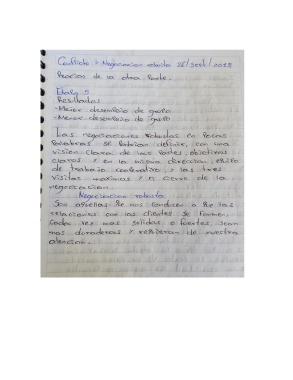 Conflicto y Negociacion robusta 28/sept/2018
Precios de la otra Parte.
Etapa 5
Resultados
- Mejor desempeño de grupo
- Menor desempeño de grupo
Las negociaciones robustas en pocas
Palabras se Podrian definir, con una
vision clara de las Partes objetivos
claros y en la misma direccion, exito
de trabajo cooperativo y las tres
visitas maximas y el cierre de la
negociacion
Negociacion robusta
Son aquellas que nos conducen a que las
relaciones con los clientes se formen
cada vez mas solidas o fuentes, sean
mas duraderas y de nuestra
atencion.